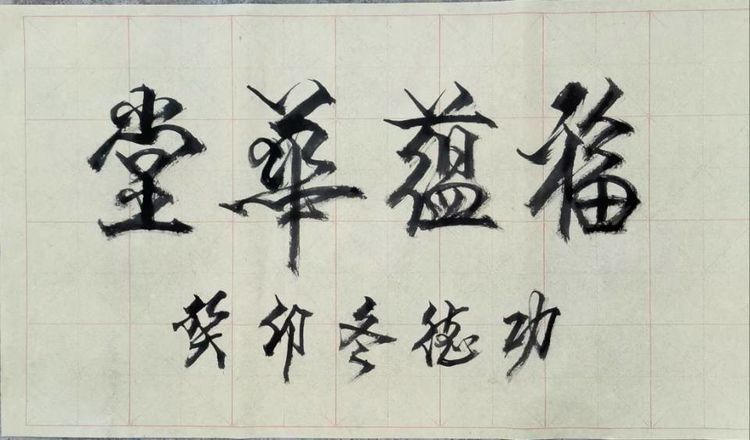 福蘊華堂
癸卯冬德功